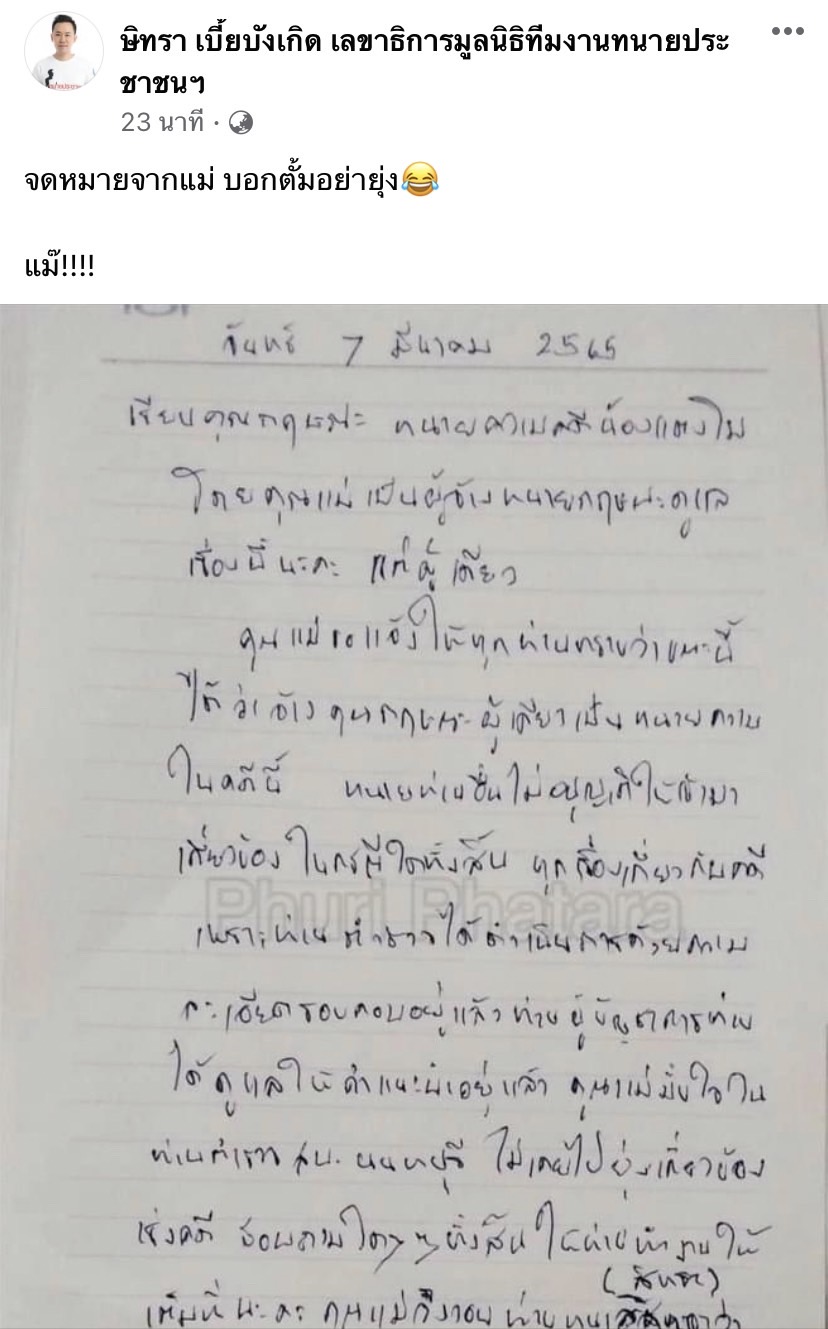 ษิทรา เบี้ยบังเกิด เลขาธิการมูลนิธิทีมงานทนายประ
ชาชนฯ
23 นาที ·
จดหมายจากแม่ บอกตั้มอย่ายุ่ง😂
แม๊!!!!
จันทร์ 7 มีนาคม 2565
เรียนคุณกฤษณะ ทนายความคดีน้องแตงโม
โดยคุณแม่เป็นผู้จ้างทนายกฤษณะดูแล
เรื่องนี้นะคะ แต่ผู้เดียว
คุณแม่ขอแจ้งให้ทุกท่านทราบว่าขณะนี้
ได้ว่าจ้างคุณกฤษณะผู้เดียวเป็นทนายความ
ในคดีนี้ ทนายท่านอื่นไม่อนุญาติให้เข้ามา
เกี่ยวข้องในกรณีใดทั้งสิ้น ทุกเรื่องเกี่ยวกับคดี
Phuri Phatara
เพราะท่านตำรวจได้ดำเนินการด้วยความ
ละเอียดรอบคอบอยู่แล้วท่านผู้บัญชาการท่าน
ได้ดูแลให้คำแนะนำอยู่แล้ว คุณแม่มั่นใจใน
ท่านตำรวจ สภ. นนทบุรี ไม่เคยไปยุ่งเกี่ยวข้อง
เรื่องคดี สอบถามใดๆ ๆ ทั้งสิ้น ให้ท่านทำงานให้
(สิทธา)
เต็มที่นะคะ คุณแม่ถึง ท่านทนาย ว่า